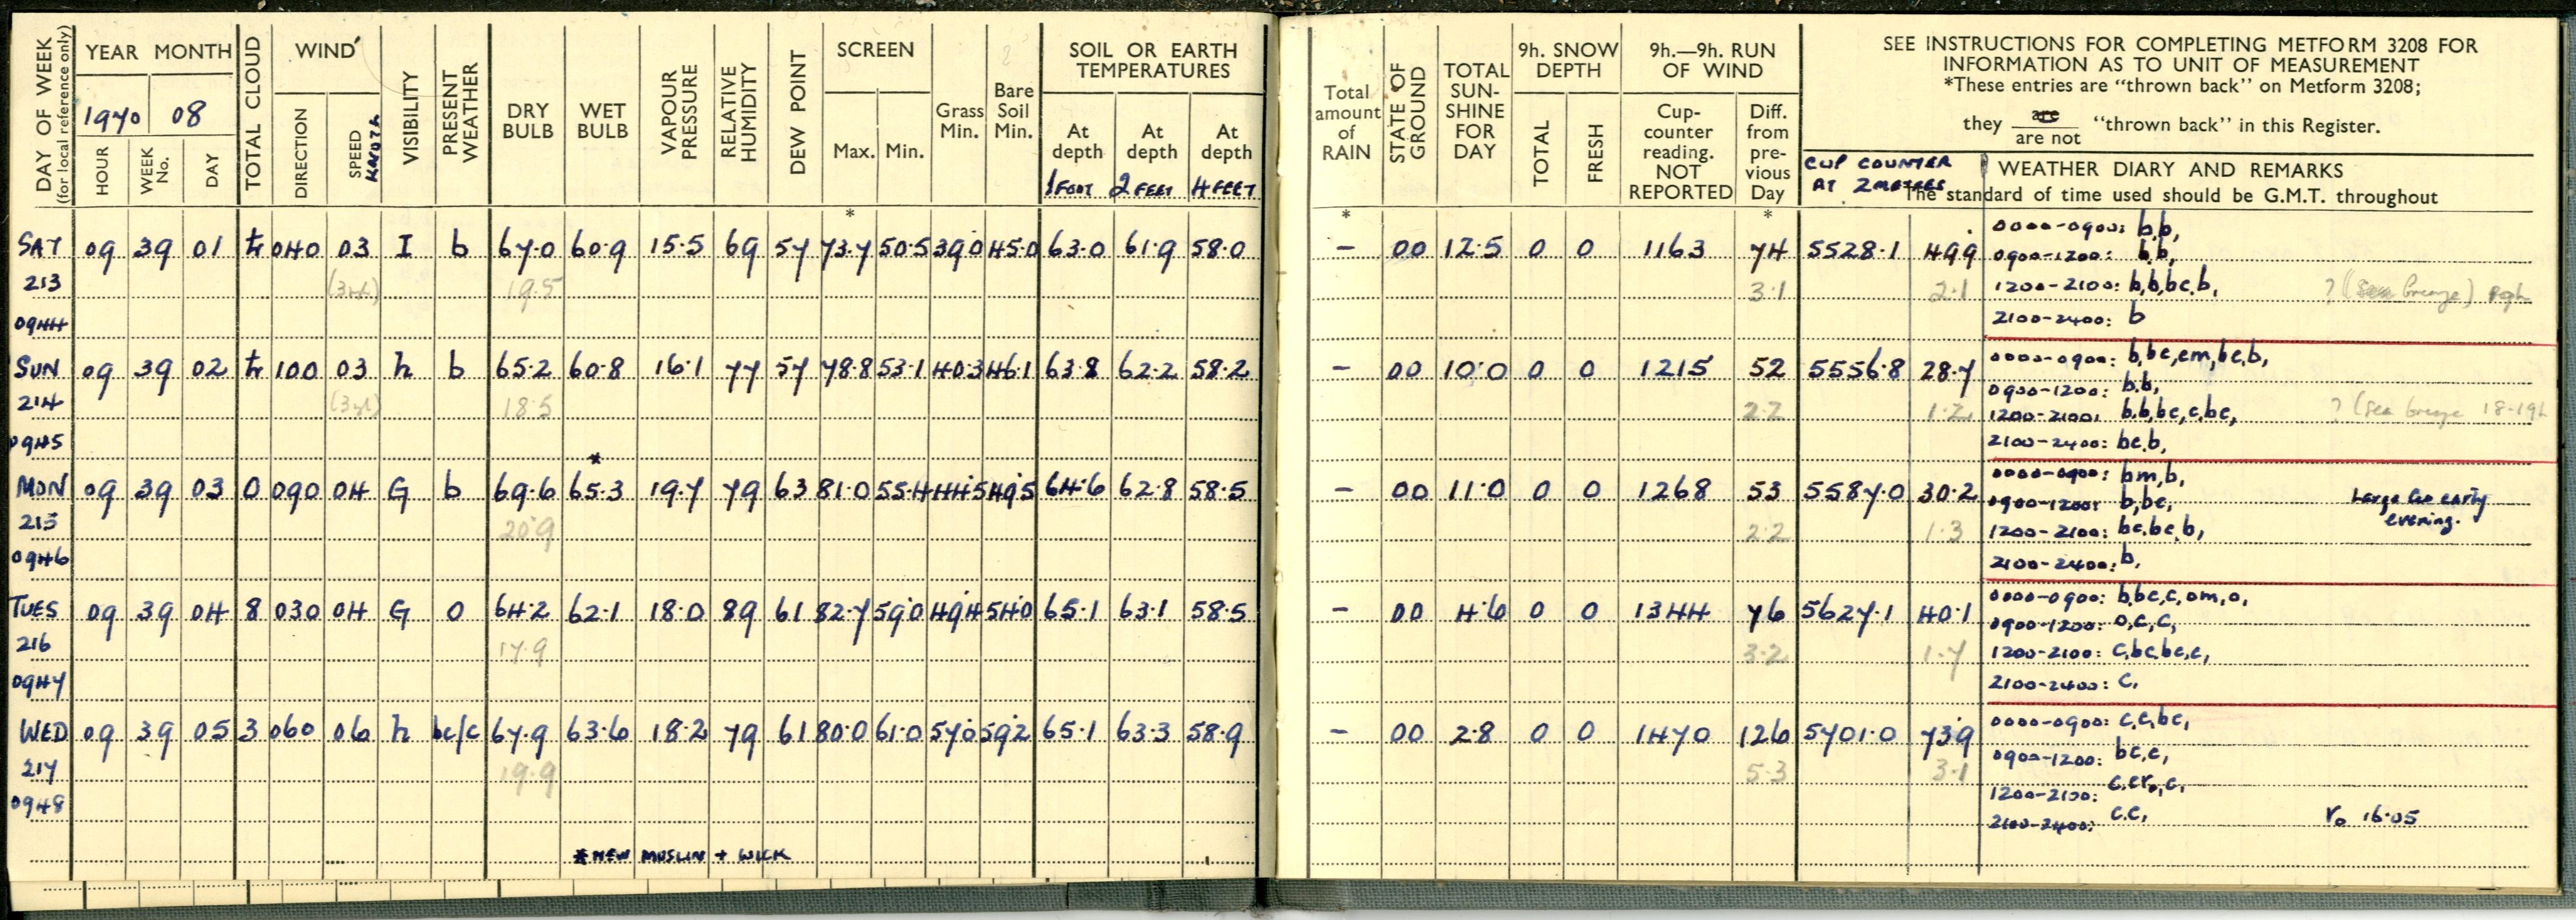 DAY OF WEEK
(for local reference only)
YEAR MONTH
1970 08
HOUR
WEEK No.
DAY
TOTAL CLOUD
WIND
DIRECTION
SPEED
KNOTS
VISIBILITY
PRESENT WEATHER
DRY BULB
WET BULB
VAPOUR PRESSURE
RELATIVE HUMIDITY
DEW POINT
SCREEN
Max. Min.
Grass Min.
Bare Soil Min.
SOIL OR EARTH TEMPERATURES
At depth 1 FOOT
At depth 2 FEET
At depth 4 FEET
Total amount of RAIN
STATE OF GROUND
TOTAL SUN-SHINE FOR DAY
9h. SNOW DEPTH
TOTAL
FRESH
9h.—9h. RUN OF WIND
Cup-counter reading. NOT REPORTED
Diff. from pre-vious Day
SEE INSTRUCTIONS FOR COMPLETING METFORM 3208 FOR
INFORMATION AS TO UNIT OF MEASUREMENT
*These entries are "thrown back" on Metform 3208;
they are
are not "thrown back" in this Register.
CUP COUNTER
AT 2 METRES
WEATHER DIARY AND REMARKS
The standard of time used should be G.M.T. throughout
* * *
SAT 09 39 01 tr 040 03 I b 67.0 60.9 15.5 69 57 73.7 50.5 39.0 45.0 63.0 61.9 58.0 – 00 12.5 0 0 1163 74 5528.1 49.9
0000-0900: b,b,
0900-1200: b,b,
213 19.5 3.1 2.1
1200-2100: b,b,bc,b, ? (sea breeze)
0944
2100-2400: b
SUN 09 39 02 tr 100 03 h b 65.2 60.8 16.1 77 57 78.8 53.1 40.3 46.1 63.8 62.2 58.2 – 00 10.0 0 0 1215 52 5556.8 28.7
0000-0900: b,bc,cm,bc,b,
0900-1200: b,b,
214 18.5 2.2 1.2
1200-2100: b,b,bc,c,bc, ? (sea breeze 18-19h
0945
2100-2400: bc,b,
MON 09 39 03 0 090 04 G b 69.6 *65.3 19.7 79 63 81.0 55.4 44.5 49.5 64.6 62.8 58.5 – 00 11.0 0 0 1268 53 5587.0 30.2
0000-0900: bm,b,
0900-1200: b,bc, Large Cu early
evening.
215 20.9 2.2 1.3
1200-2100: bc,bc,b,
0946
2100-2400: b,
TUES 09 39 04 8 030 04 G O 64.2 62.1 18.0 89 61 82.7 59.0 49.4 54.0 65.1 63.1 58.5 – 00 4.6 0 0 1344 76 5627.1 40.1
0000-0900: b,bc,c,om,o,
0900-1200: o,c,c,
216 17.9 3.2 1.7
1200-2100: c,bc,bc,c,
0947
2100-2400: c,
WED 09 39 05 3 060 06 h bc/c 67.9 63.6 18.2 79 61 80.0 61.0 57.0 59.2 65.1 63.3 58.9 – 00 2.8 0 0 1470 126 5701.0 73.9
0000-0900: c,c,bc,
217 19.9 5.3 3.1
0900-1200: bc,c,
0948
1200-2100: c,cr₀,c,
2100-2400: c,c, r₀ 16.05
* NEW MUSLIN + WICK